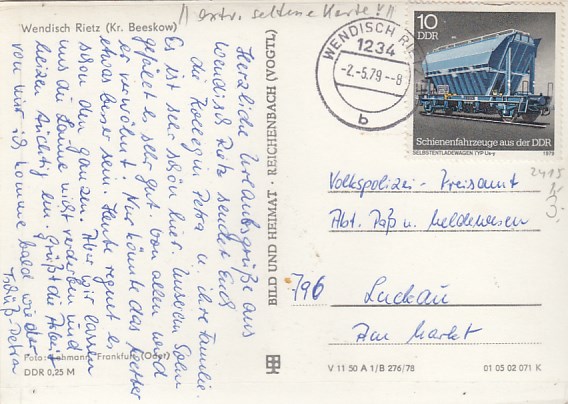 // extr. seltene Karte !!
Wendisch Rietz (Kr. Beeskow)
Herzliche Urlaubsgrüße aus
Wendisch Rietz sendet Euch
die Kollegin Petra u. ihre Familie.
Es ist sehr schön hier. Unserem Sohn
gefällt es sehr gut. Von allen wird
er verwöhnt. Nur könnte das Wetter
etwas besser sein. Heute regnet es
schon den ganzen. Aber wir lassen
uns die Laune nicht verderben und
heizen tüchtig ein. Grüßt die Arbeit
von mir ich komme bald wieder
Gruß Petra
Foto: Lehmann, Frankfurt (Oder)
DDR 0,25 M
BILD UND HEIMAT · REICHENBACH (VOGTL)
WENDISCH RI
1234
-2.-5.79--8
b
10
DDR
Schienenfahrzeuge aus der DDR
SELBSTENTLADEWAGEN (TYP Us-y
1979
2415
3.-
Volkspolizei-Kreisamt
Abt. Paß u. Meldewesen
796 Luckau
Am Markt
V 11 50 A 1/B 276/78
01 05 02 071 K